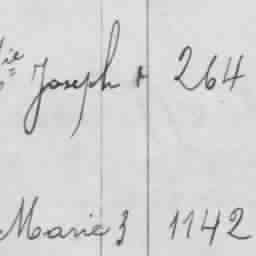 Joseph 264
Marie 3 1142